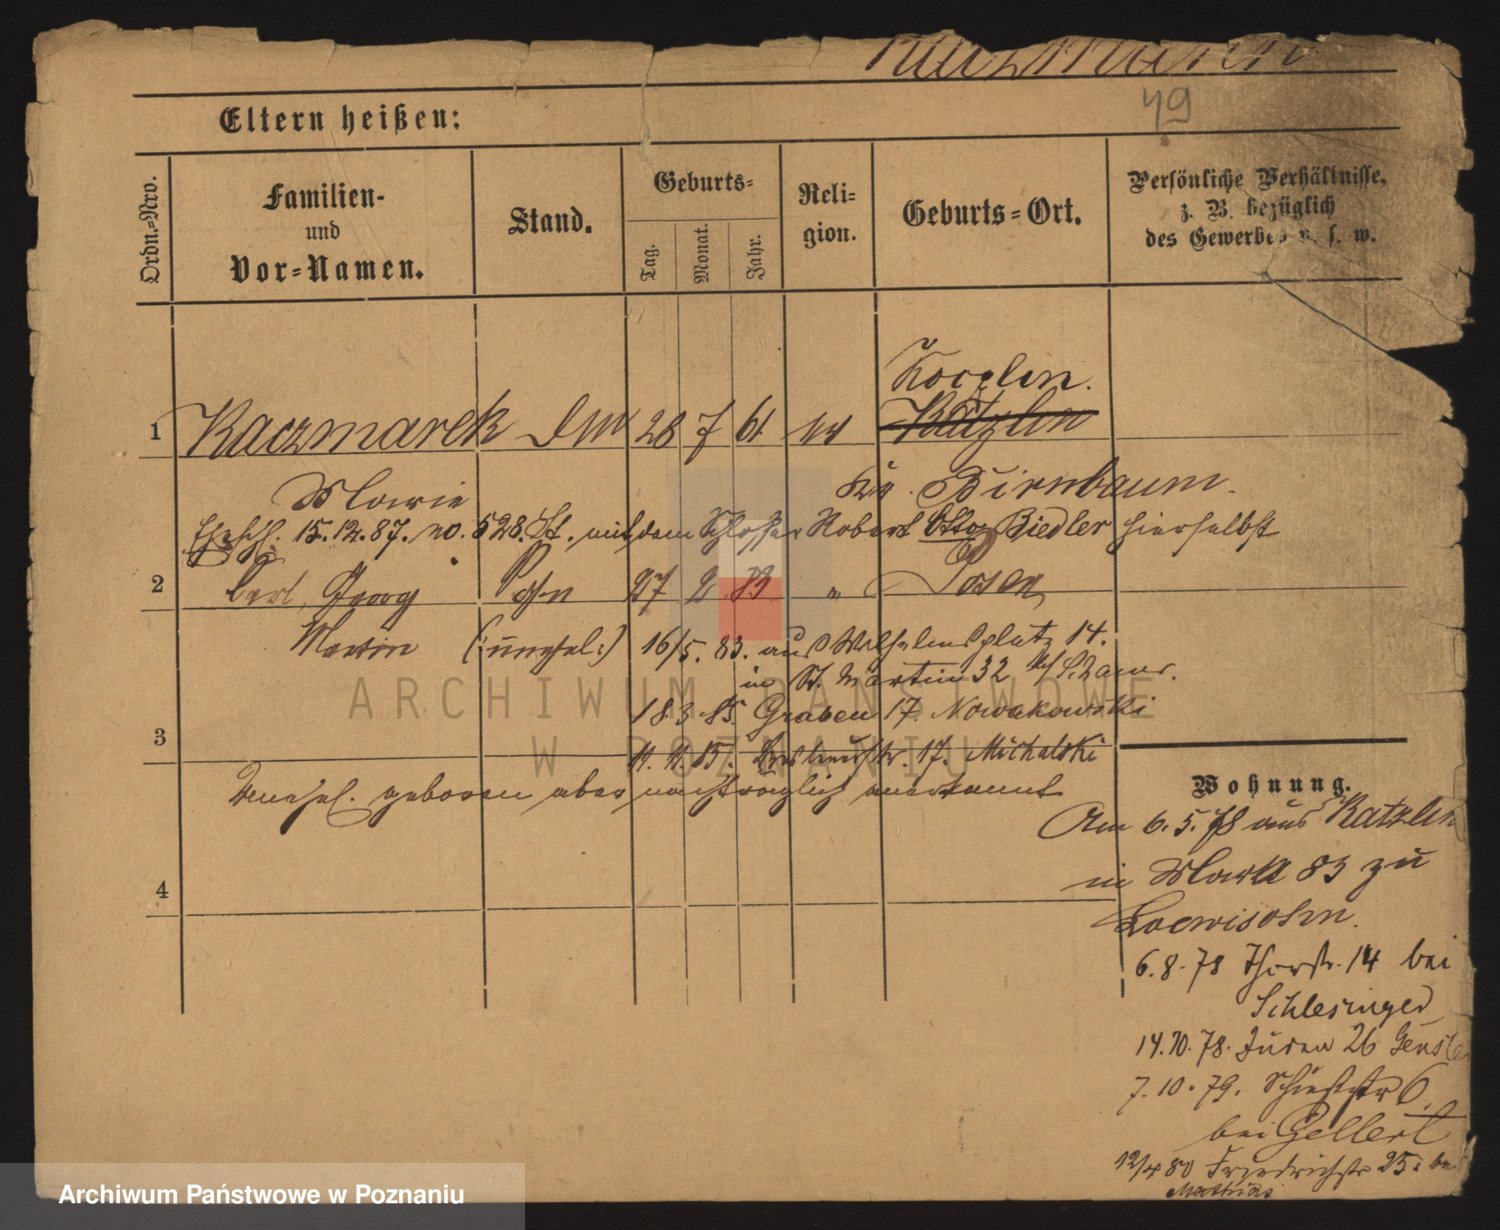 Kaczmarek
49
Eltern heißen:
Ordn.-Nro.
Familien-
und
Vor-Namen.
Stand.
Geburts-
Tag.
Monat.
Jahr.
Reli-
gion.
Geburts-Ort.
Persönliche Verhältnisse,
z. B. bezüglich
des Gewerbes u. s. w.
Korzlin.
1 Kaczmarek 28 7 61 Katzlin
Marie Kr. Birnbaum.
15.12.87. no. 528. St. mit dem Schlosser Robert Otto Biedler hierselbst
2 Carl, Georg Sohn 27 2 83 " Posen
Martin (:unehel:) 16/5. 83. aus Wilhelmsplatz 14.
in St. Martin 32
18.3.85. Graben 17. Nowakowski
3 17. Michalski
Unehel. geboren aber nachträglich anerkannt
Wohnung.
Am 6.5.78 aus Katzlin
in Markt 83 zu
Loewisohn.
4
6.8.78 Thorstr. 14 bei
Schlesinger
14.10.78. Juden 26
7.10.79. Schießstr 6.
bei Gellert
12/4 80 Friedrichstr 25 bei
Mathias
ARCHIWUM PAŃSTWOWE
W POZNANIU
Archiwum Państwowe w Poznaniu